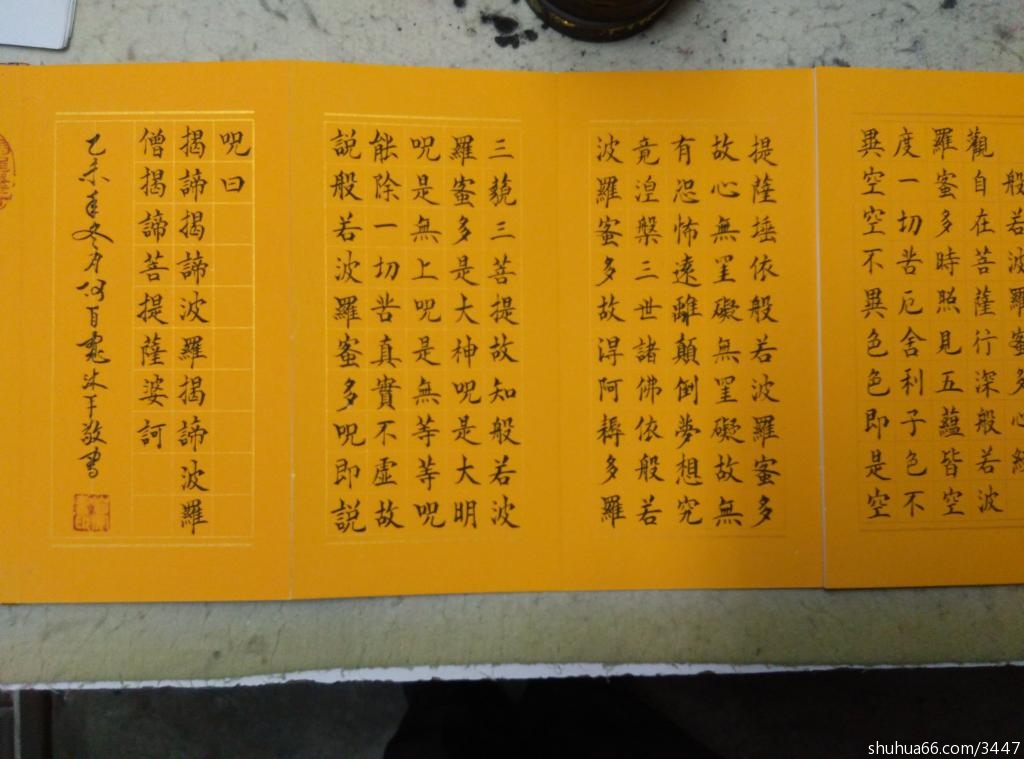 般若波羅蜜多心經
觀自在菩薩行深般若波
羅蜜多時照見五蘊皆空
度一切苦厄舍利子色不
異空空不異色色即是空
提薩埵依般若波羅蜜多
故心無罣礙無罣礙故無
有恐怖遠離顛倒夢想究
竟涅槃三世諸佛依般若
波羅蜜多故得阿耨多羅
三藐三菩提故知般若波
羅蜜多是大神呪是大明
呪是無上呪是無等等呪
能除一切苦真實不虛故
説般若波羅蜜多呪即説
呪曰
揭諦揭諦波羅揭諦波羅
僧揭諦菩提薩婆訶
乙未年冬月何百沐手敬書
shuhua66.com/3447